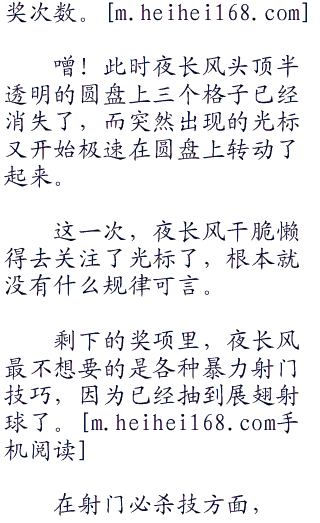 奖次数。[m.heihei168.com]
噌！此时夜长风头顶半
透明的圆盘上三个格子已经
消失了，而突然出现的光标
又开始极速在圆盘上转动了
起来。
这一次，夜长风干脆懒
得去关注了光标了，根本就
没有什么规律可言。
剩下的奖项里，夜长风
最不想要的是各种暴力射门
技巧，因为已经抽到展翅射
球了。[m.heihei168.com手
机阅读]
在射门必杀技方面，